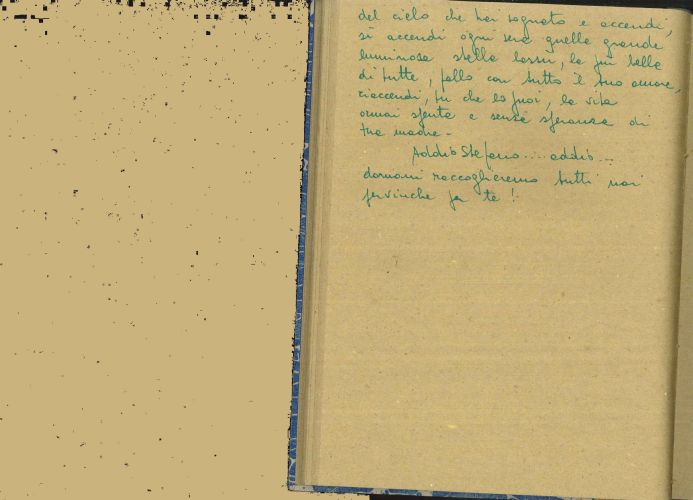 del cielo che hai sognato e accendi,
sì accendi ogni sera quella grande
luminosa stella lassù, la più bella
di tutte, fallo con tutto il tuo amore,
riaccendi, tu che lo puoi, la vita
ormai spenta e senza speranza di
tua madre -
Addio Stefano.... addio...
domani raccoglieremo tutti noi
pervinche per te !